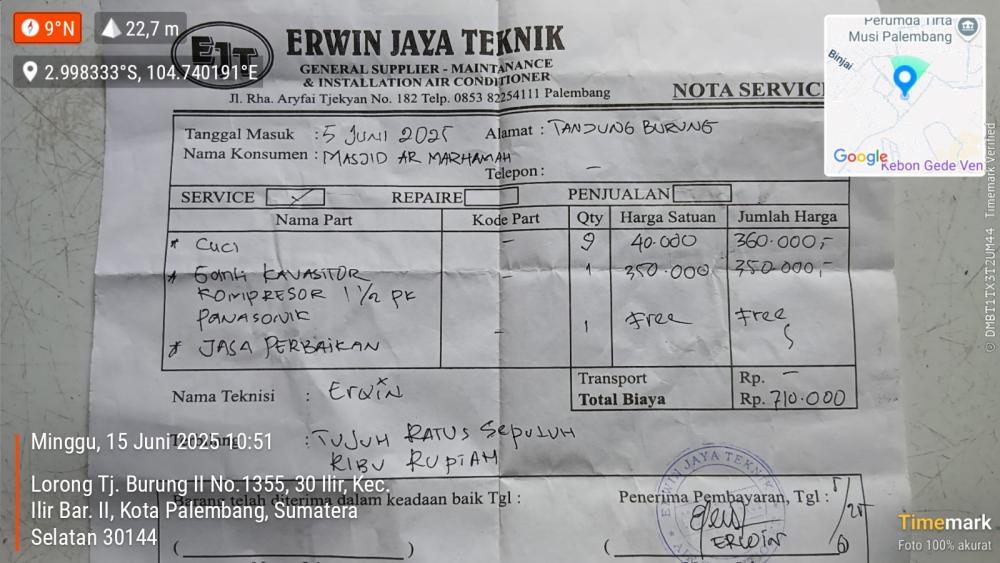 9°N
22,7 m
2.998333°S, 104.740191°E
EJT
ERWIN JAYA TEKNIK
GENERAL SUPPLIER - MAINTANANCE
& INSTALLATION AIR CONDITIONER
Jl. Rha. Aryfai Tjekyan No. 182 Telp. 0853 82254111 Palembang
NOTA SERVICE
Perumda Tirta
Musi Palembang
Binjai
Google
Kebon Gede Ven
Tanggal Masuk : 5 JUNI 2025
Alamat : TANDJUNG BURUNG
Nama Konsumen : MASJID AR MARHAMAH
Telepon : –
SERVICE ✓ REPAIRE PENJUALAN
Nama Part Kode Part Qty Harga Satuan Jumlah Harga
* CUCI – 9 40.000 360.000,-
* GANTI KAVASITOR – 1 350.000 350.000,-
KOMPRESOR 1 1/2 PK
PANASONIK 1 Free Free
* JASA PERBAIKAN –
Transport Rp. –
Total Biaya Rp. 710.000
Nama Teknisi : ERWIN
: TUJUH RATUS SEPULUH
RIBU RUPIAH
Barang telah diterima dalam keadaan baik Tgl :
Penerima Pembayaran, Tgl : 5/6/25
ERWIN JAYA TEKNIK
(                ) ( ERWIN
Minggu, 15 Juni 2025 10:51
Lorong Tj. Burung II No.1355, 30 Ilir, Kec.
Ilir Bar. II, Kota Palembang, Sumatera
Selatan 30144
Timemark
Foto 100% akurat
© DMBT1TX3T2UM44 Timemark Verified